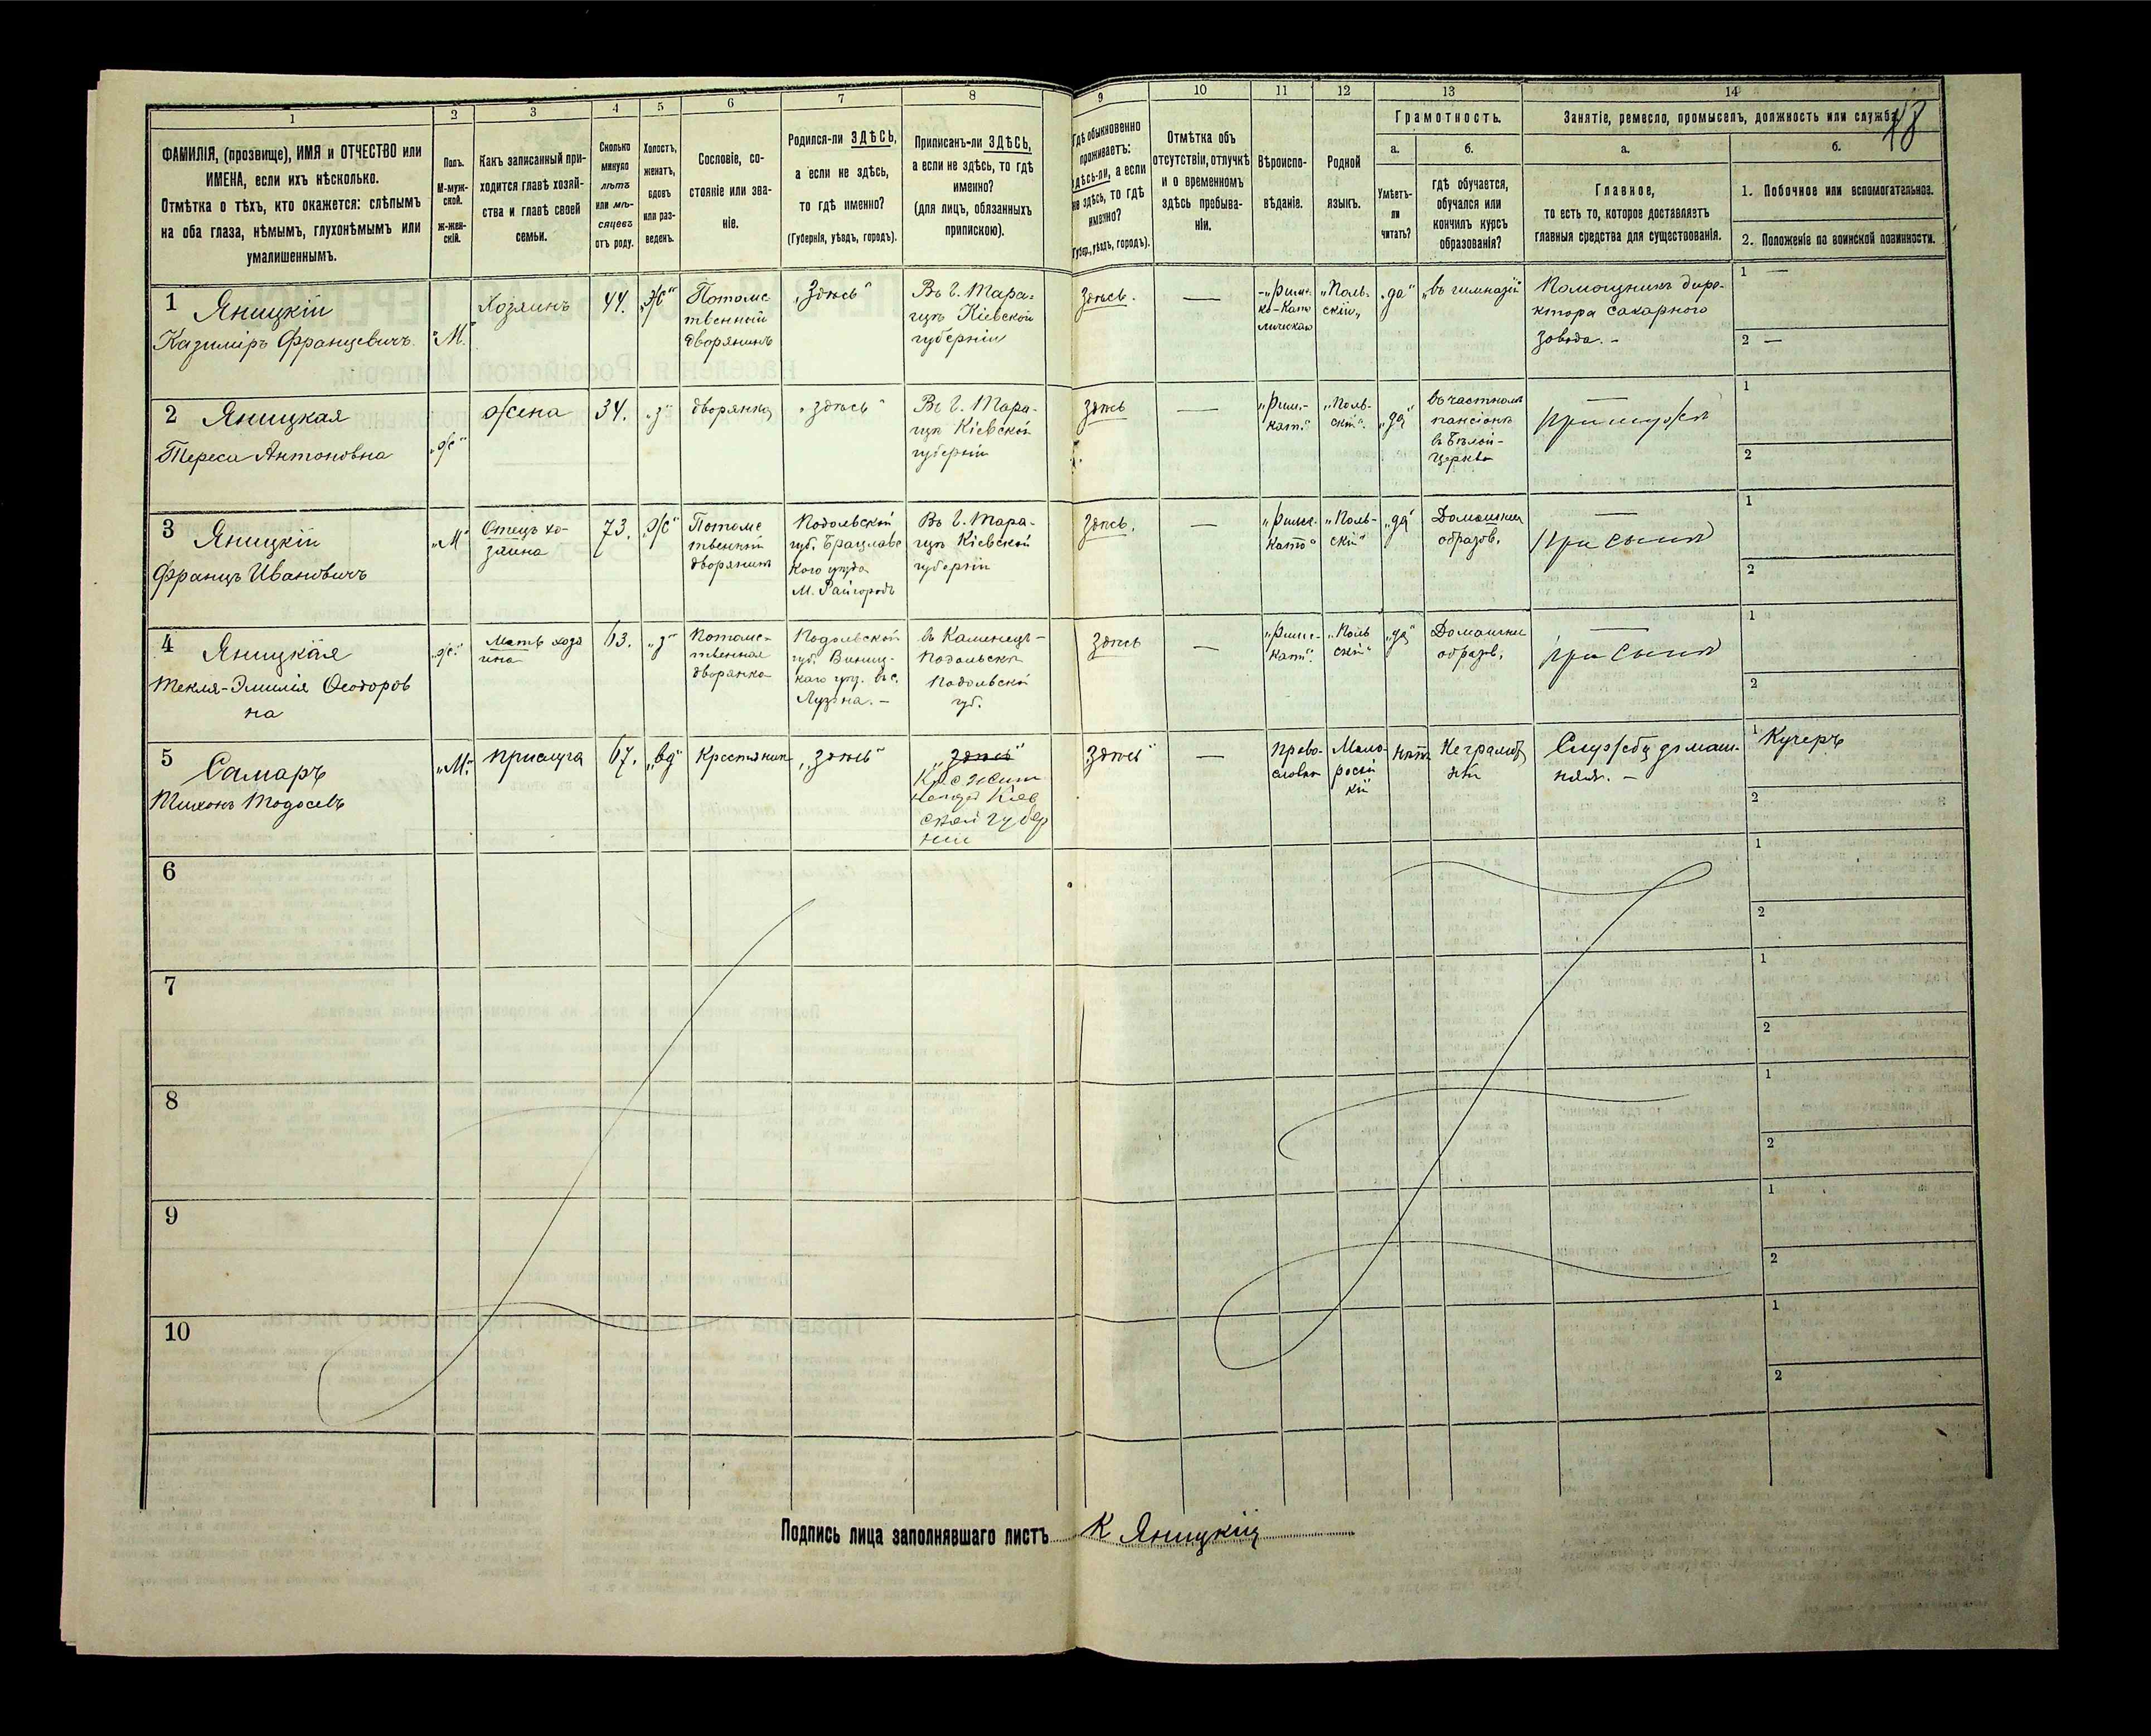 1
2
3
4
5
6
7
8
ФАМИЛІЯ, (прозвище), ИМЯ и ОТЧЕСТВО или
ИМЕНА, если ихъ нѣсколько.
Отмѣтка о тѣхъ, кто окажется: слѣпымъ
на оба глаза, нѣмымъ, глухонѣмымъ или
умалишеннымъ.
Полъ.
М-муж-
ской.
Ж-жен-
скій.
Какъ записанный при-
ходится главѣ хозяй-
ства и главѣ своей
семьи.
Сколько
минуло
лѣтъ
или мѣ-
сяцевъ
отъ роду.
Холостъ,
женатъ,
вдовъ
или раз-
веденъ.
Сословіе, со-
стояніе или зва-
ніе.
Родился-ли ЗДѢСЬ,
а если не здѣсь,
то гдѣ именно?
(Губернія, уѣздъ, городъ).
Приписанъ-ли ЗДѢСЬ,
а если не здѣсь, то гдѣ
именно?
(для лицъ, обязанныхъ
припискою).
9
10
11
12
13
14
Гдѣ обыкновенно
проживаетъ:
здѣсь-ли, а если
не здѣсь, то гдѣ
именно?
(Губер., уѣздъ, городъ).
Отмѣтка объ
отсутствіи, отлучкѣ
и о временномъ
здѣсь пребыва-
ніи.
Вѣроиспо-
вѣданіе.
Родной
языкъ.
Грамотность.
а.
Умѣетъ-
ли
читать?
б.
гдѣ обучается,
обучался или
кончилъ курсъ
образованія?
Занятіе, ремесло, промыселъ, должность или служба.
48
а.
Главное,
то есть то, которое доставляетъ
главныя средства для существованія.
б.
1. Побочное или вспомогательное.
2. Положеніе по воинской повинности.
1 Яницкій
Казиміръ Францевичъ
"М."
Хозяинъ
44.
"ж"
Потомс
твенный
дворянинъ
"Здѣсь"
Въ г. Тара-
щѣ Кіевской
губерніи
Здѣсь.
—
"Римс-
ко-Като
лическая
"Поль-
скій"
"да"
"въ гимназіи"
Помощникъ дире-
ктора сахарного
завода. -
1 —
2 —
2 Яницкая
Тереса Антоновна
"ж"
жена
34.
"з"
дворянка
"здѣсь"
Въ г. Тара-
щѣ Кіевской
губерніи
здѣсь
—
"Рим.-
кат."
"Поль-
скій".
"да"
въ частномъ
пансіонѣ
въ Бѣлой-
Церкви
—
при мужѣ
1
2
3 Яницкій
Францъ Ивановичъ
"М"
Отецъ хо-
зяина
73.
"ж"
Потомс
твенный
дворянинъ
Подольской
губ. Брацлавс
кого уѣзда
М. Райгородъ
Въ г. Тара-
щѣ Кіевской
губерніи
здѣсь.
—
"Римск.
Като"
"Поль-
скій"
"да"
Домашнее
образов.
—
При сынѣ
1
2
4 Яницкая
Текля-Эмилія Ѳеодоров
на
"ж."
Мать хозя
ина
63.
"з"
Потомс-
твенная
дворянка
Подольской
губ. Винниц-
каго уѣз. въ с.
Лузна. -
въ Каменецъ-
Подольскѣ
Подольской
губ.
здѣсь
—
"Римс-
кат."
"Поль
скій"
"да"
Домашнее
образов.
—
При сынѣ
1
2
5 Самаръ
Тихонъ Тодосевъ
"М."
прислуга
67.
"вд"
Крестьянин
"здѣсь"
"здѣсь"
Кіев
ской губер
ніи
здѣсь"
—
право-
славн
Мало-
россій
кій
нѣтъ
Неграмот
ный
Служба домаш-
няя. -
1 Кучеръ
2
6
1
2
7
1
2
8
1
2
9
1
2
10
1
2
Подпись лица заполнявшаго листъ К Яницкій